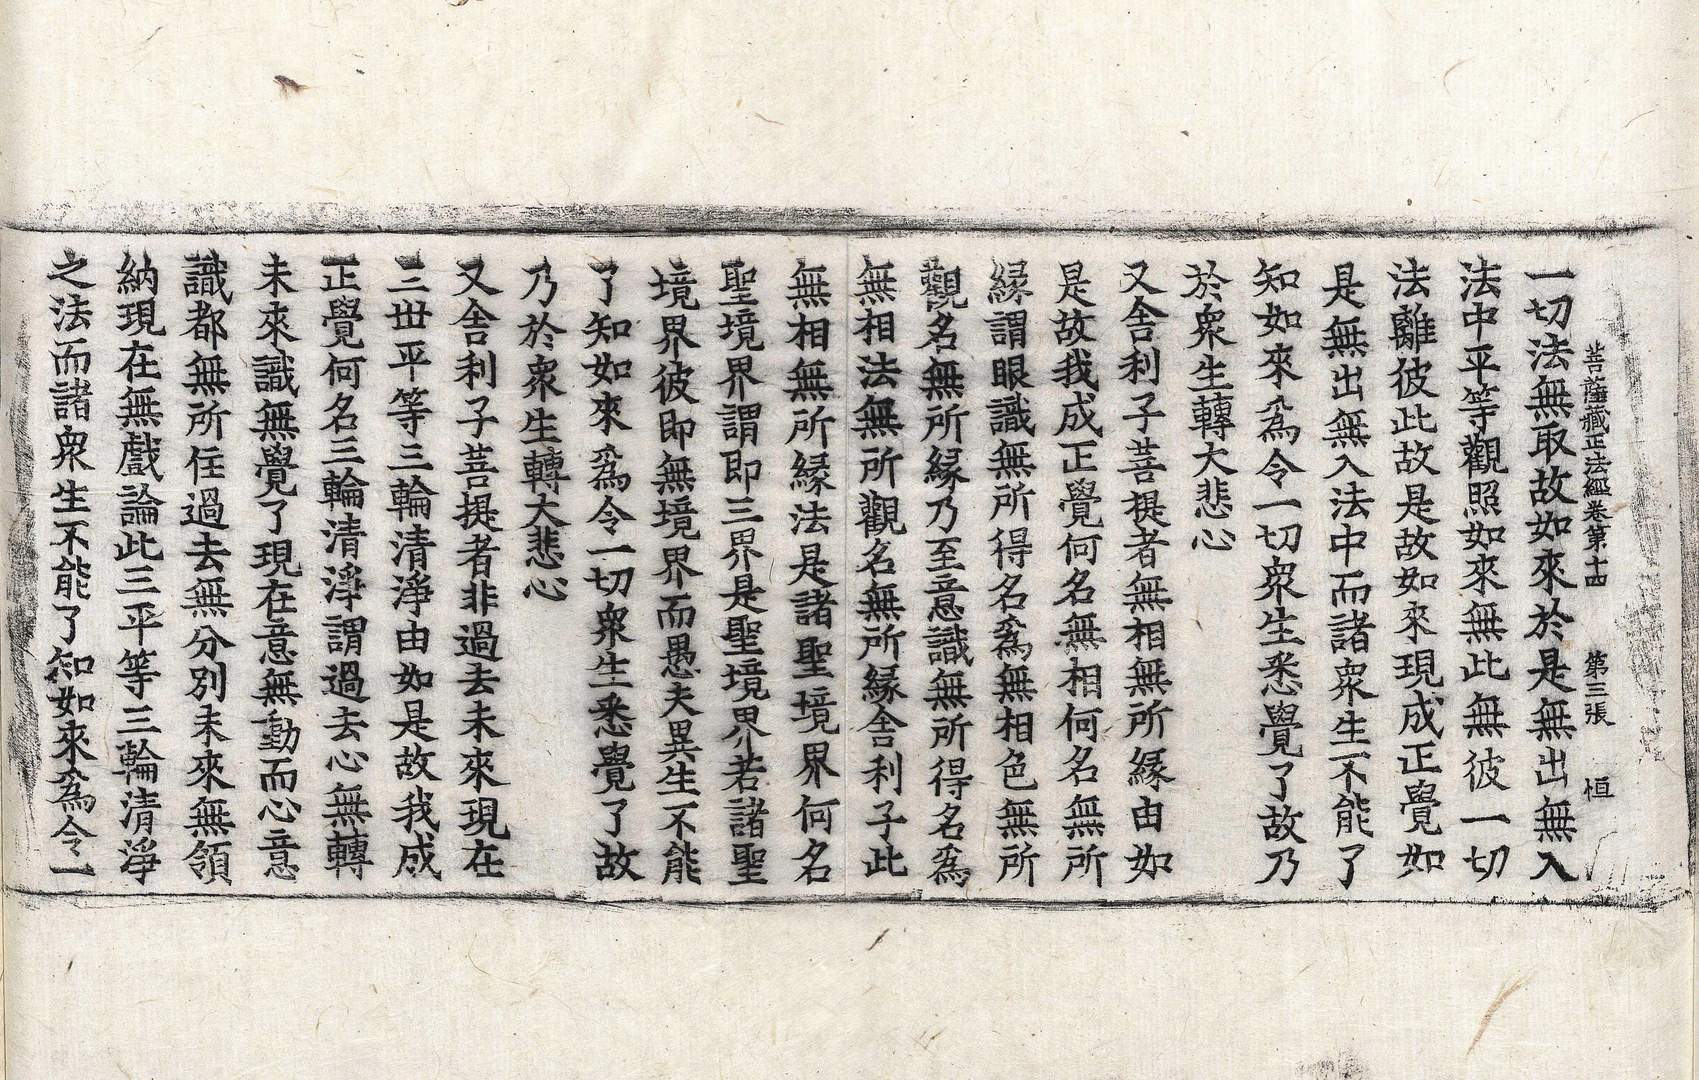 菩薩藏正法經卷第十四 第三張 恒
一切法無取故如來於是無出無入
法中平等觀照如來無此無彼一切
法離彼此故是故如來現成正覺如
是無出無入法中而諸衆生不能了
知如來爲令一切衆生悉覺了故乃
於衆生轉大悲心
又舍利子菩提者無相無所縁由如
是故我成正覺何名無相何名無所
縁謂眼識無所得名爲無相色無所
觀名無所縁乃至意識無所得名爲
無相法無所觀名無所縁舍利子此
無相無所縁法是諸聖境界何名
聖境界謂即三界是聖境界若諸聖
境界彼即無境界而愚夫異生不能
了知如來爲令一切衆生悉覺了故
乃於衆生轉大悲心
又舍利子菩提者非過去未來現在
三世平等三輪清淨由如是故我成
正覺何名三輪清淨謂過去心無轉
未來識無覺了現在意無動而心意
識都無所住過去無分別未來無領
納現在無戲論此三平等三輪清淨
之法而諸衆生不能了知如來爲令一